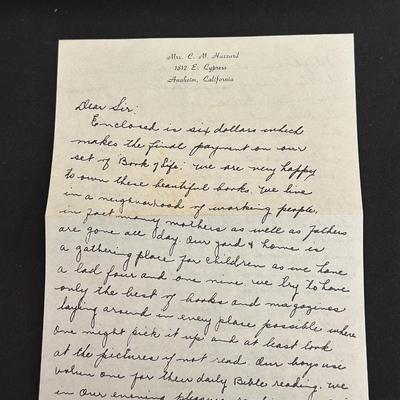 Mrs. C. M. Hazzard
1812 E. Cypress
Anaheim, California
Dear Sir:
Enclosed is six dollars which
makes the final payment on our
set of Book of Life. We are very happy
to own these beautiful books. We live
in a neighborhood of working people,
in fact many mothers as well as fathers
are gone all day. Our yard & home is
a gathering place for children as we have
a lad four and one nine. We try to have
only the best of books and magazines
laying around in every place possible where
one might pick it up and at least look
at the pictures if not read. Our boys use
volum one for their daily Bible reading. We
in our evening pleasure